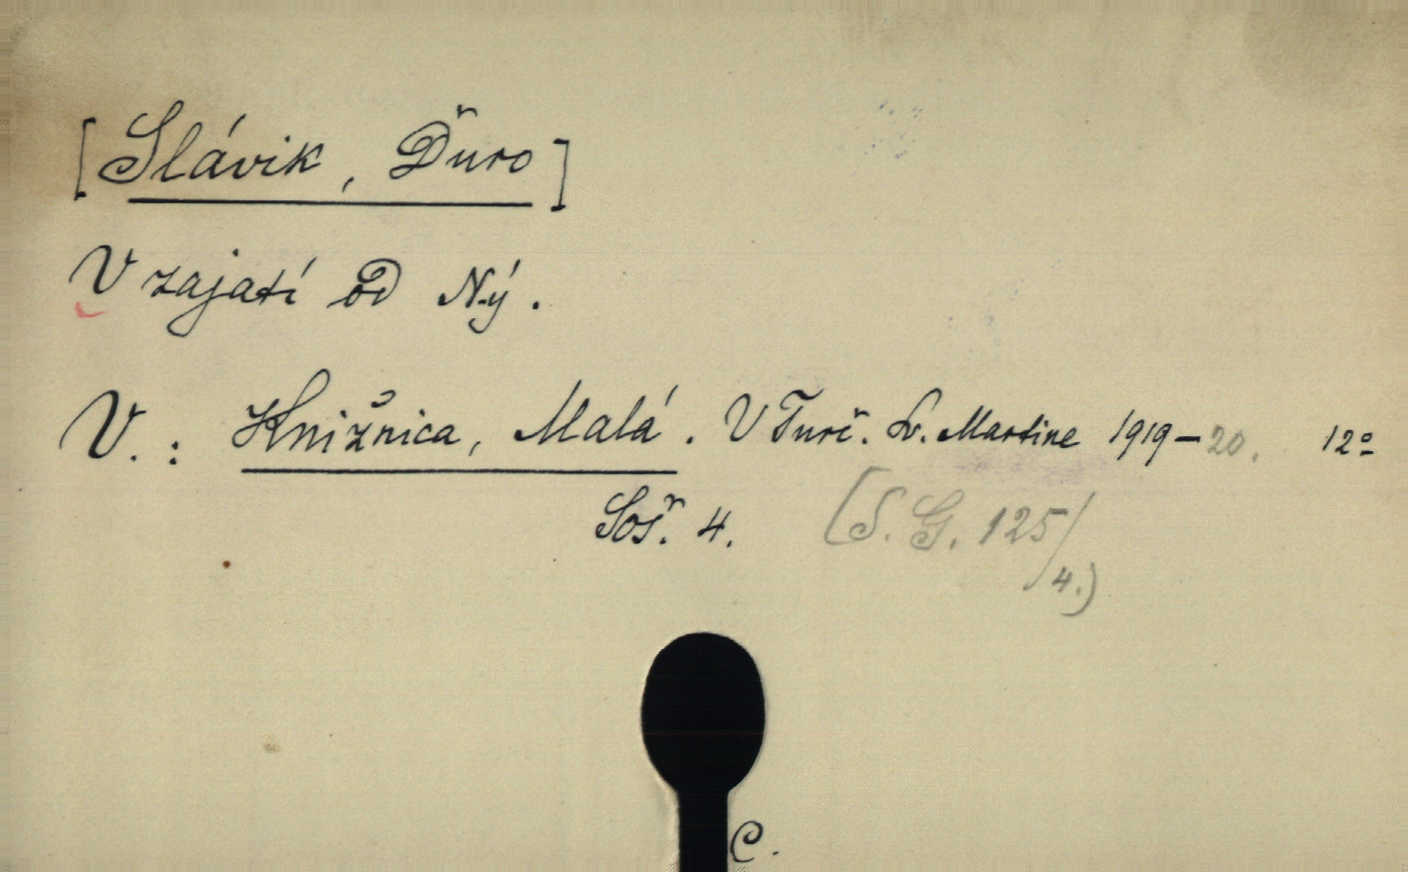 [Slávik, Ďuro]
V zajatí od Ný.
V.: Knižnica, Malá. V Turč. Sv. Martine 1919-20. 12º
Soš. 4. (S. G. 125/4.)
C.